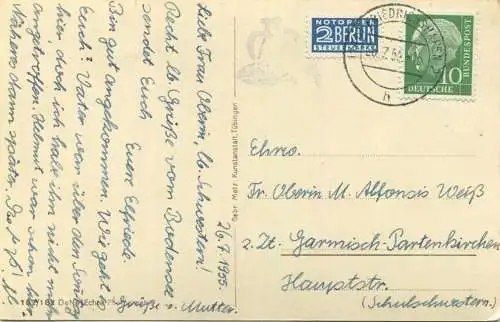 NOTOPFER
2 BERLIN
STEUERMARKE
FRIEDRICHSHAFEN
h
DEUTSCHE
BUNDESPOST
10
26.7.1955.
Liebe Frau Oberin, lb. Schwestern!
Recht lb. Grüße vom Bodensee
sendet Euch
Eure Elfriede.
Bin gut angekommen. Wie geht es
Euch? Vater war über den Sonntag
hier, doch ich habe ihn nicht mehr
angetroffen. Helmut war schon hier.
Näheres dann später.
Grüße v. Mutter.
Gebr. Metz Kunstanstalt, Tübingen
Ehrw.
Fr. Oberin M. Alfonsis Weiß
z. Zt. Garmisch-Partenkirchen
Hauptstr.
(Schulschwestern)